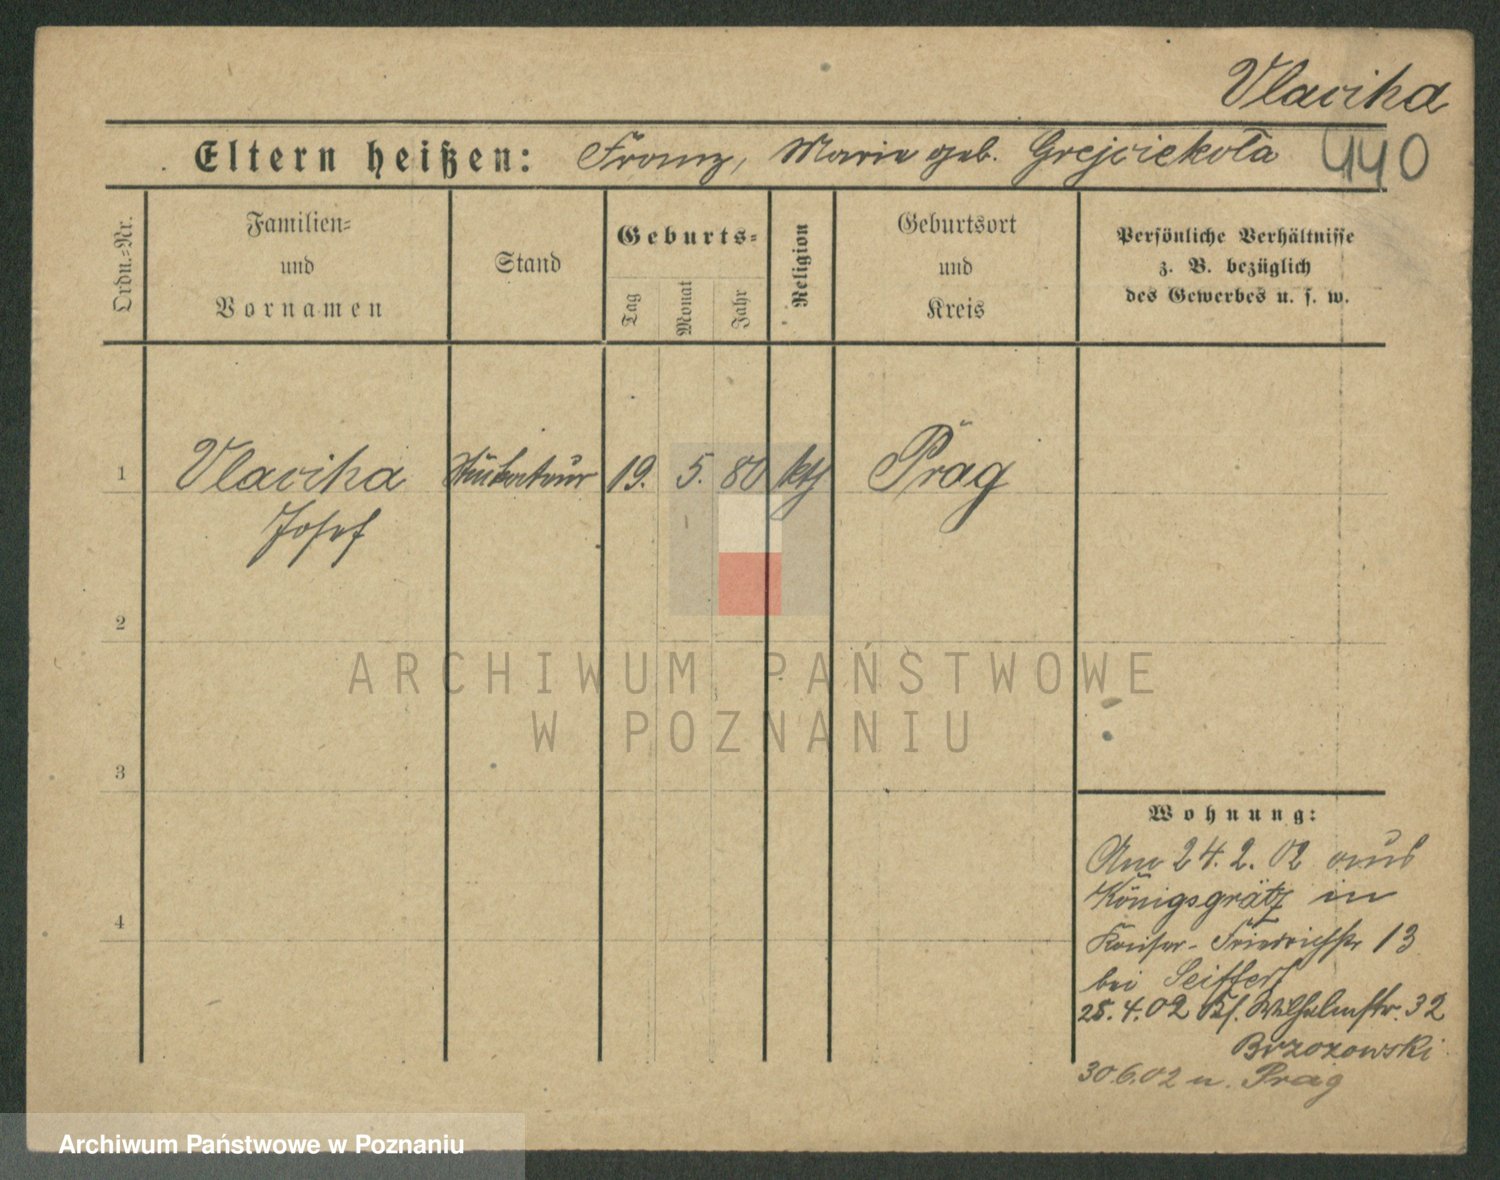 Vlaciha
Eltern heißen: Franz, Marie geb. Grejciekota 440
Ordn.=Nr.
Familien=
und
Vornamen
Stand
Geburts=
Tag
Monat
Jahr
Religion
Geburtsort
und
Kreis
Persönliche Verhältnisse
z. B. bezüglich
des Gewerbes u. s. w.
1 Vlaciha 19. 5. 80 kth Prag
Josef
2
ARCHIWUM PAŃSTWOWE
W POZNANIU
3
Wohnung:
Am 24.2.02 aus
Königsgrätz in
Kaiser-Friedrichstr 13
bei Seiffert
25.4.02 Wilhelmstr. 32
Brzozowski
30.6.02 n. Prag
4
Archiwum Państwowe w Poznaniu